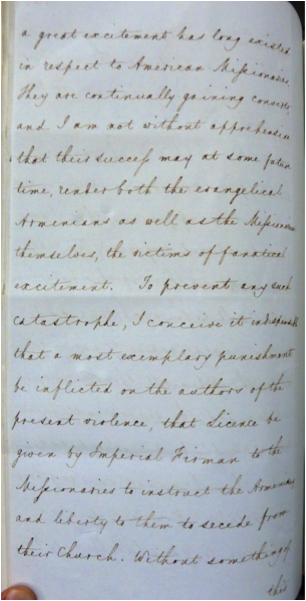 a great excitement has long existed
in respect to American Missionaries.
They are continually gaining converts,
and I am not without apprehension
that their success may at some future
time, render both the evangelical
Armenians as well as the Missionaries
themselves, the victims of fanatical
excitement. To prevent any such
catastrophe, I conceive it indispensable
that a most exemplary punishment
be inflicted on the authors of the
present violence, that Licence be
given by Imperial Firman to the
Missionaries to instruct the Armenians
and liberty to them to secede from
their Church. Without something of
this